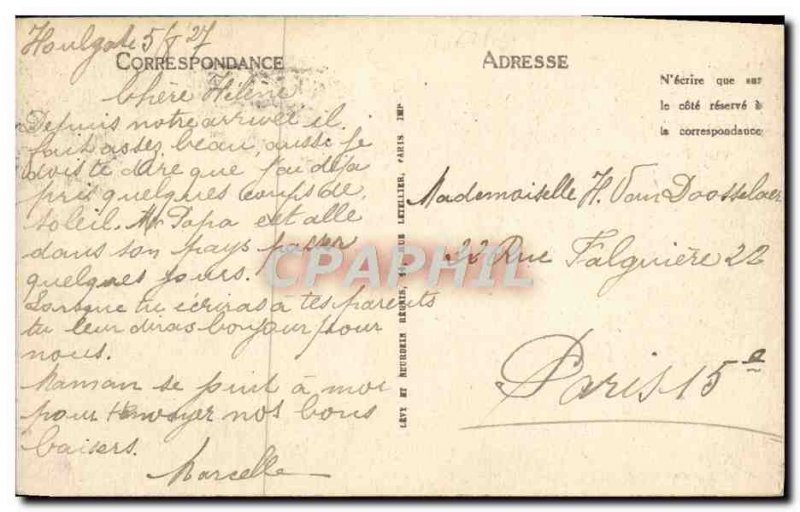 Houlgate 5/8 27
CORRESPONDANCE
Chère Hélène
Depuis notre arrivée il
fait assez beau, aussi je
dois te dire que j'ai déja
pris quelques coups de
soleil. Mr Papa est allé
dans son pays passer
quelques jours.
Lorsque tu écriras à tes parents
tu leur diras bonjour pour
nous.
Maman se joint à moi
pour t'envoyer nos bons
baisers.
Marcelle
LÉVY ET NEURDEIN RÉUNIS, 44, RUE LETELLIER, PARIS IMP
ADRESSE
N'écrire que sur
le côté réservé à
la correspondance
Mademoiselle H. Van Dosselaer
22 Rue Falguière 22
Paris 15e
CPAPHIL